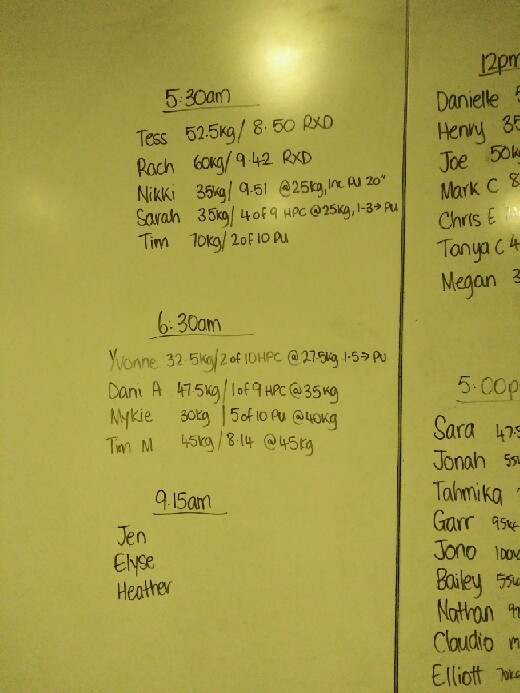 5:30am
Tess 52.5kg/ 8.50 RXD
Rach 60kg/ 9.42 RXD
Nikki 35kg/ 9.51 @25kg, Inc PU 20"
Sarah 35kg/ 4 of 9 HPC @25kg, 1-3→ PU
Tim 70kg/ 2 of 10 PU
6:30am
Yvonne 32.5kg/2 of 10 HPC @27.5kg 1-5→ PU
Dani A 47.5kg/ 1 of 9 HPC @35kg
Nykie 30kg | 5 of 10 PU @40kg
Tim M 45kg/ 8.14 @45kg
9.15am
Jen
Elyse
Heather
12pm
Danielle
Henry 35
Joe 50k
Mark C 8
Chris E
Tanya C 4
Megan 3
5:00p
Sara 47.5
Jonah 55k
Tahmika
Garr 95k
Jono 100k
Bailey 55k
Nathan 9
Claudio
Elliott 70kg